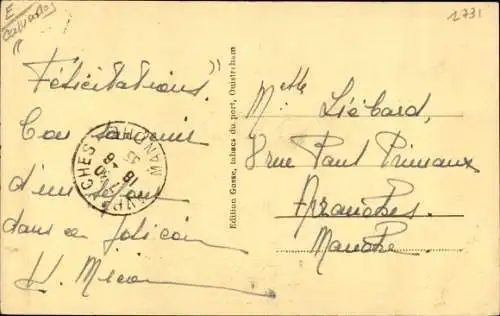 E
Calvados
1731
"Félicitations"
Bon souvenir
d'un séjour
dans ce joli coin
Edition Gosse, tabacs du port, Ouistreham
AVRANCHES MANCHE
18 -8
35
Melle Liébard,
8 rue Paul
Avranches.
Manche